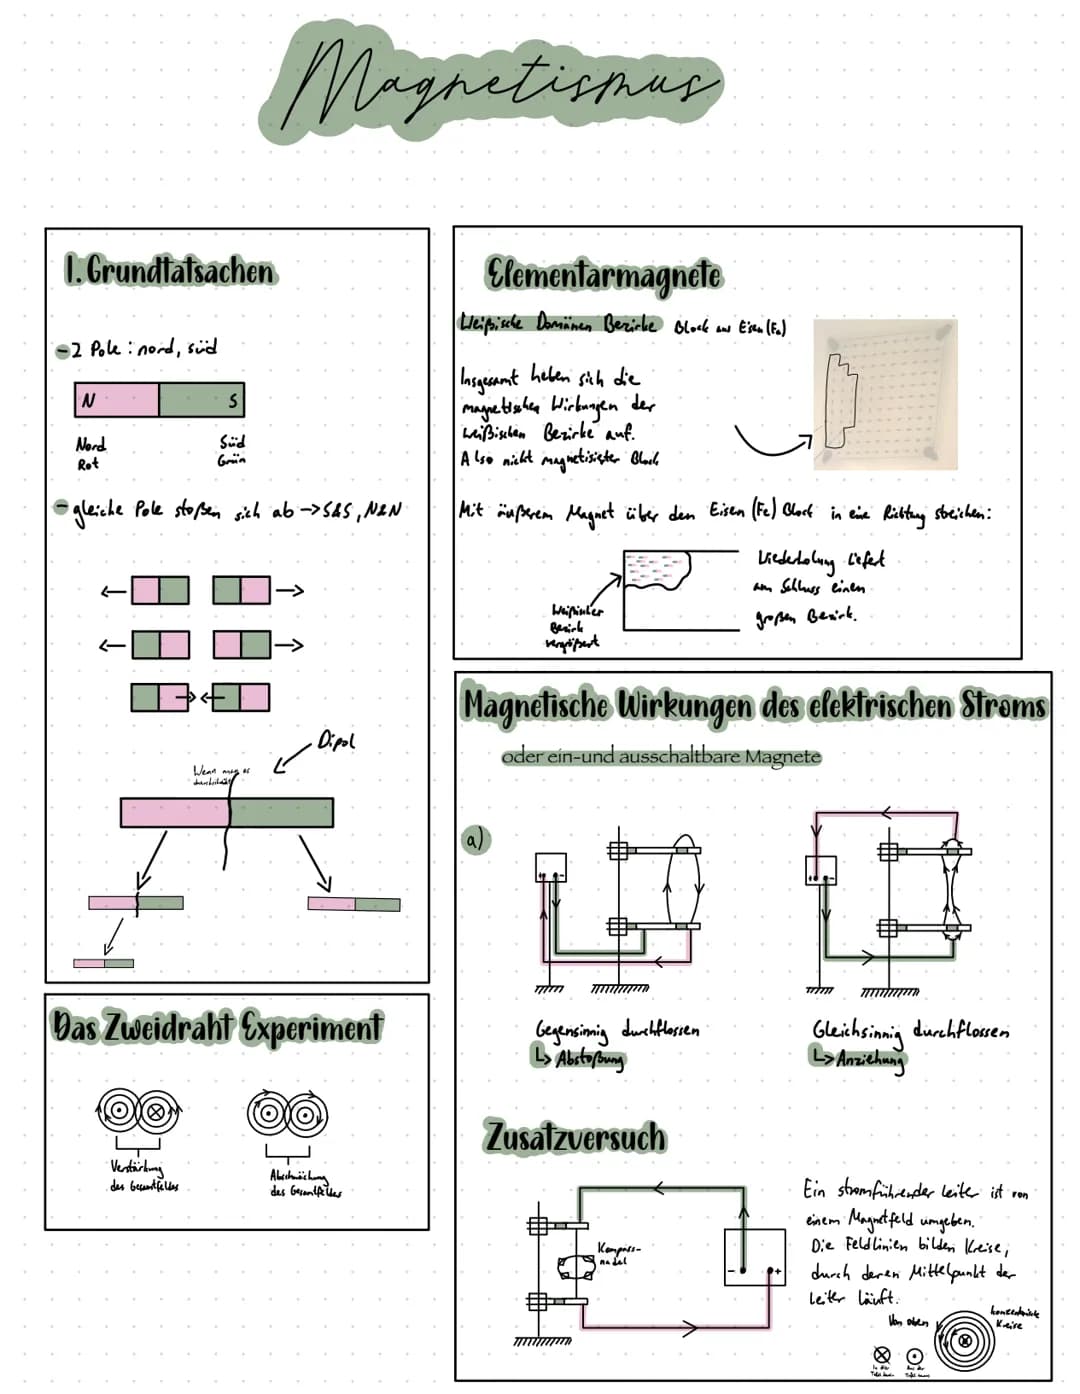 Magnetismus
1. Grundtatsachen
- 2 Pole : nord, süd
N S
Nord Süd
Rot Grün
- gleiche Pole stoßen sich ab -> S&S, N&N
Dipol
Wenn man es
durchschneidet
Das Zweidraht Experiment
Verstärkung
des Gesamtfeldes
Abschwächung
des Gesamtfeldes
Elementarmagnete
Weißische Domänen Bezirke Block aus Eisen (Fe)
Insgesamt heben sich die
magnetischen Wirkungen der
weißischen Bezirke auf.
Also nicht magnetisierter Block
Mit äußerem Magnet über den Eisen (Fe) Block in eine Richtung streichen:
Weißischer
Bezirk
vergrößert
Wiederholung liefert
am Schluss einen
großen Bezirk.
Magnetische Wirkungen des elektrischen Stroms
oder ein-und ausschaltbare Magnete
a)
+ -
+ -
Gegensinnig durchflossen
↳ Abstoßung
Gleichsinnig durchflossen
↳ Anziehung
Zusatzversuch
Kompass-
nadel
- +
Ein stromführender Leiter ist von
einem Magnetfeld umgeben.
Die Feldlinien bilden Kreise,
durch deren Mittelpunkt der
Leiter läuft.
Von oben
konzentrische
Kreise
In die
Tafel hinein
Aus der
Tafel raus